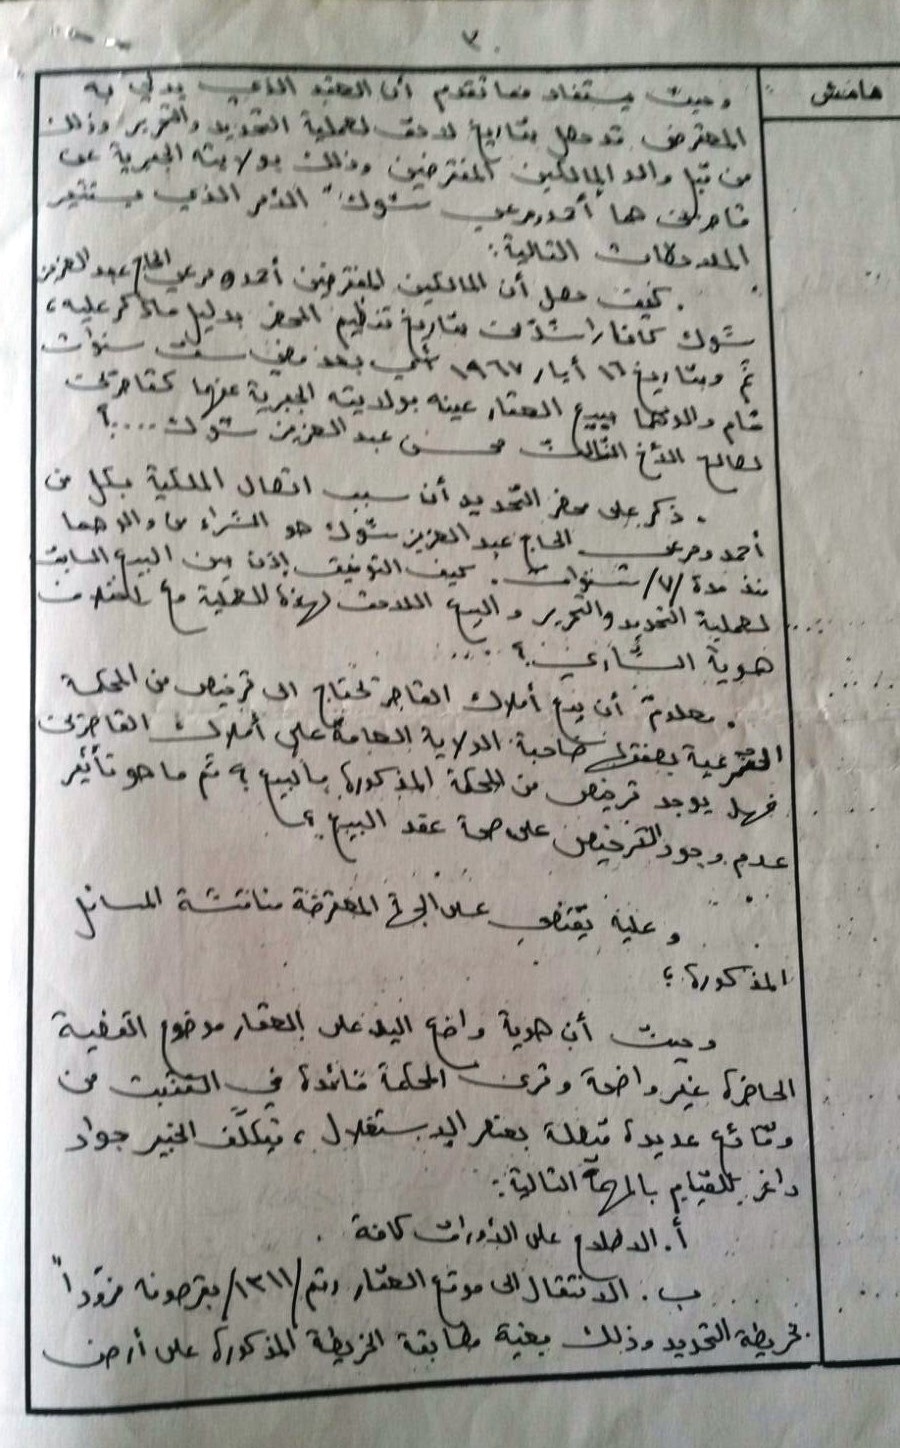 ٣
هامش
وحيث يستفاد مما تقدم أن العقد الذي يدلي به
المعترض قد حصل بتاريخ لاحق لعملية التحديد والتحرير وذلك
من قبل والد المالكين المفترضين وذلك بولايته الجبرية عن
قاصرين هما أحمد ومرعي شوك" الأمر الذي يستثير
الملاحظات التالية:
. كيف حصل أن المالكين المفترضين أحمد ومرعي الحاج عبد العزيز
شوك كانا راشدين بتاريخ تنظيم المحضر بدليل ما ذكر عليه،
ثم وبتاريخ ١٦ أيار ١٩٦٧ أي بعد مضي ست سنوات
قام والدهما ببيع العقار عينه بولايته الجبرية عنهما كقاصرين
لصالح الأخ الثالث حسن عبد العزيز شوك ....؟
. ذكر على محضر التحديد أن سبب اتصال الملكية بكل من
أحمد ومرعي الحاج عبد العزيز شوك هو الشراء من والدهما
منذ مدة /٧/ سنوات. كيف التوفيق إذن بين البيع السابق
لعملية التحديد والتحرير والبيع اللاحق لهذه العملية مع اختلاف
هوية الشاري؟ ....
. معلوم أن بيع أملاك القاصر تحتاج الى ترخيص من المحكمة
الشرعية بصفتها صاحبة الولاية العامة على أملاك القاصرين
فهل يوجد ترخيص من المحكمة المذكورة بالبيع؟ ثم ما هو تأثير
عدم وجود الترخيص على صحة عقد البيع؟
وعليه يقتضي على الجهة المعترضة مناقشة المسائل
المذكورة؛
وحيث أن هوية واضع اليد على العقار موضوع القضية
الحاضرة غير واضحة وترى المحكمة فائدة في التثبت من
وقائع عديدة متصلة بعنصر الاستغلال، تكلّف الخبير جواد
داغر للقيام بالمهمة التالية:
أ. الاطلاع على الأوراق كافة.
ب. الانتقال الى موقع العقار رقم /١٣١١/ بقرصونه مزوّداً
بخريطة التحديد وذلك بغية مطابقة الخريطة المذكورة على أرض